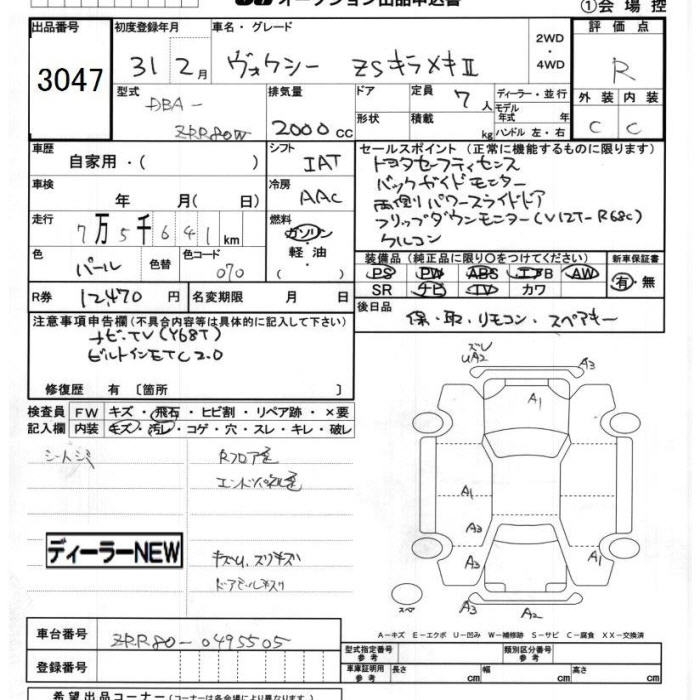 オークション出品申込書
①会場控
出品番号
3047
初度登録年月
31 2月
車名・グレード
ヴォクシー ZSキラメキⅡ
2WD
・
4WD
評価点
R
外装 内装
C C
型式
DBA-
ZRR80W
排気量
2000cc
ドア
形状
定員 7人
積載 kg
ディーラー・並行
モデル
年式 年
ハンドル 左・右
車歴
自家用・( )
シフト
IAT
セールスポイント (正常に機能するものに限ります)
トヨタセーフティセンス
バックガイドモニター
両側パワースライドドア
フリップダウンモニター(V12T-R68C)
クルコン
車検
年 月( 日)
冷房
AAC
走行
7万5千641km
燃料
ガソリン
・
軽油
( )
色
パール
色替
色コード
070
装備品 (純正品に限り○をつけてください)
PS PW ABS エアB AW
SR ナビ TV カワ
新車保証書
有・無
R券 12,470円
名変期限 月 日
後日品
保・取・リモコン・スペアキー
注意事項申告欄(不具合内容等は具体的に記入して下さい)
ナビ・TV(Y68T)
ビルトインETC2.0
修復歴 有 〔箇所 〕
検査員
記入欄
FW キズ・飛石・ヒビ割・リペア跡・×要
内装 キズ・汚レ・コゲ・穴・スレ・キレ・破レ
シートシミ
Rフロア歪
エンドパネル歪
ディーラーNEW
キズU、スリキズ
ドアモールキスリ
ズレ
UA2
A3
A1
A1
A2
A3
A1
A3
A2
スペア
A－キズ E－エクボ U－凹み W－補修跡 S－サビ C－腐食 XX－交換済
車台番号
ZRR80-0495505
登録番号
型式指定番号
参考
類別区分番号
参考
車庫証明用
参考
長さ cm
幅 cm
高さ cm
希望出品コーナー (コーナーは各会場により異なります。)